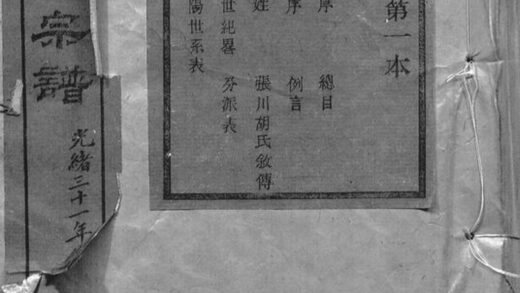 第一本
序 總目
序 例言
姓 張川胡氏敘傳
世紀畧 分派表
陽世系表
宗譜
光緒三十一年